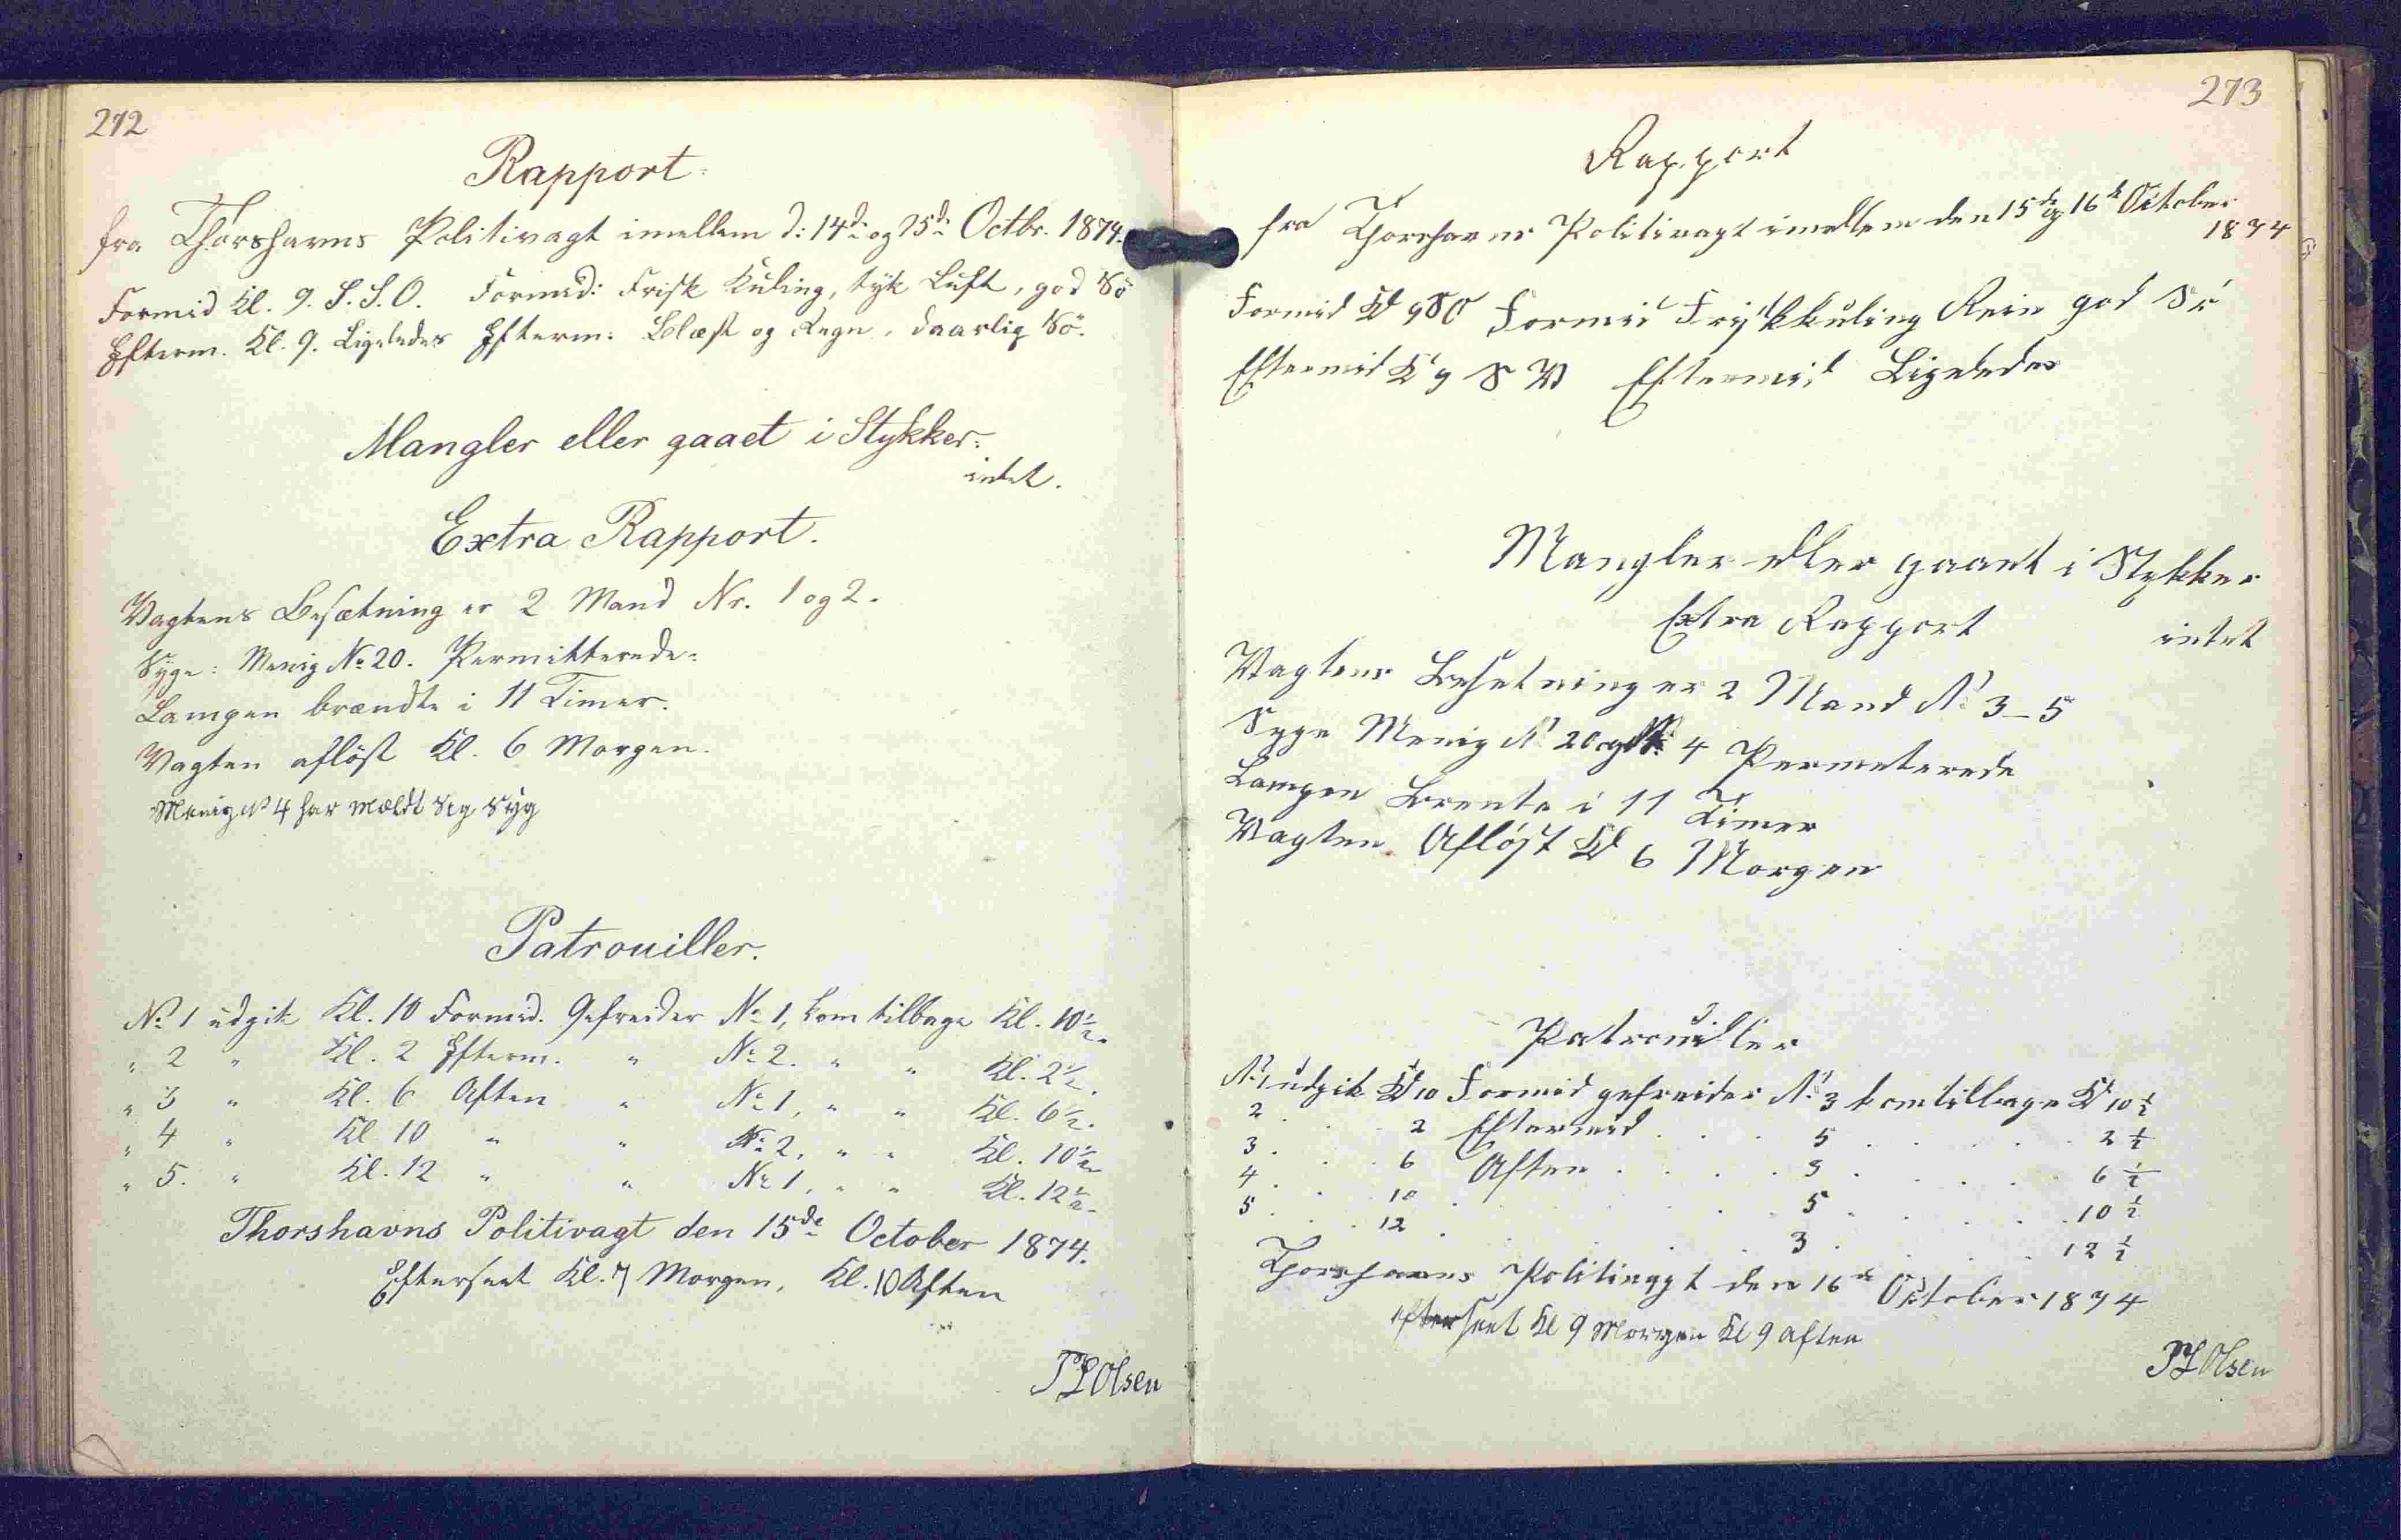 272
Rapport.
fra Thorshavns Politivagt imellem d: 14de og 15de Octbr. 1874.
Formid Kl. 9. S.S.O. Formid: Frisk Kuling, tyk Luft, god Sö
Efterm. Kl. 9. Ligeledes Efterm: Blæst og Regn, daarlig Sö.
Mangler eller gaaet i Stykker:
intet.
Extra Rapport.
Vagtens Besætning er 2 Mand Nr. 1 og 2.
Syge: Menig No 20. Permitterede:
Lampen brændte i 11 Timer.
Vagten aflöst Kl. 6 Morgen.
Menig No 4 har Mældt Sig Syg
Patrouiller.
No 1 udgik Kl. 10 Formid. Gefreider No 1, kom tilbage Kl. 10½.
" 2 " Kl. 2 Efterm. " No 2. " " Kl. 2½.
" 3 " Kl. 6 Aften " No 1, " " Kl. 6½.
" 4 " Kl 10 " " No 2, " " Kl. 10½
" 5. " Kl. 12 " " No 1, " " Kl. 12½
Thorshavns Politivagt den 15de October 1874.
Efterseet Kl. 7 Morgen, Kl. 10 Aften
P L Olsen
273
Rapport
fra Thorshavns Politivagt imellem den 15de og 16de October
1874
Formid Kl 9 SO Formid Fryskkuling Rein god Sö
Eftermid Kl 9 S V Eftermid Ligeledes
Mangler eller gaaet i Stykker
intet
Extra Rapport
Vagtens Besetning er 2 Mand No 3 – 5
Syge Menig No 20 og No 4 Permeterede
Lampen Brente i 11 Timer
Vagten Aflöst Kl 6 Morgen
Patrouiller
No 1 udgik Kl 10 Formid gefreider No 3 kom tilbage Kl 10½
2 . . 2 Eftermid . . . 5 . . . . 2½
3 . . 6 Aften . . . . 3 . . . . 6½
4 . . 10 . . . . 5 . . . . 10½
5 . . 12 . . . . 3 . . . . 12½
Thorshavns Politivagt den 16de October 1874
Efterseet Kl 9 Morgen Kl 9 Aften
P L Olsen